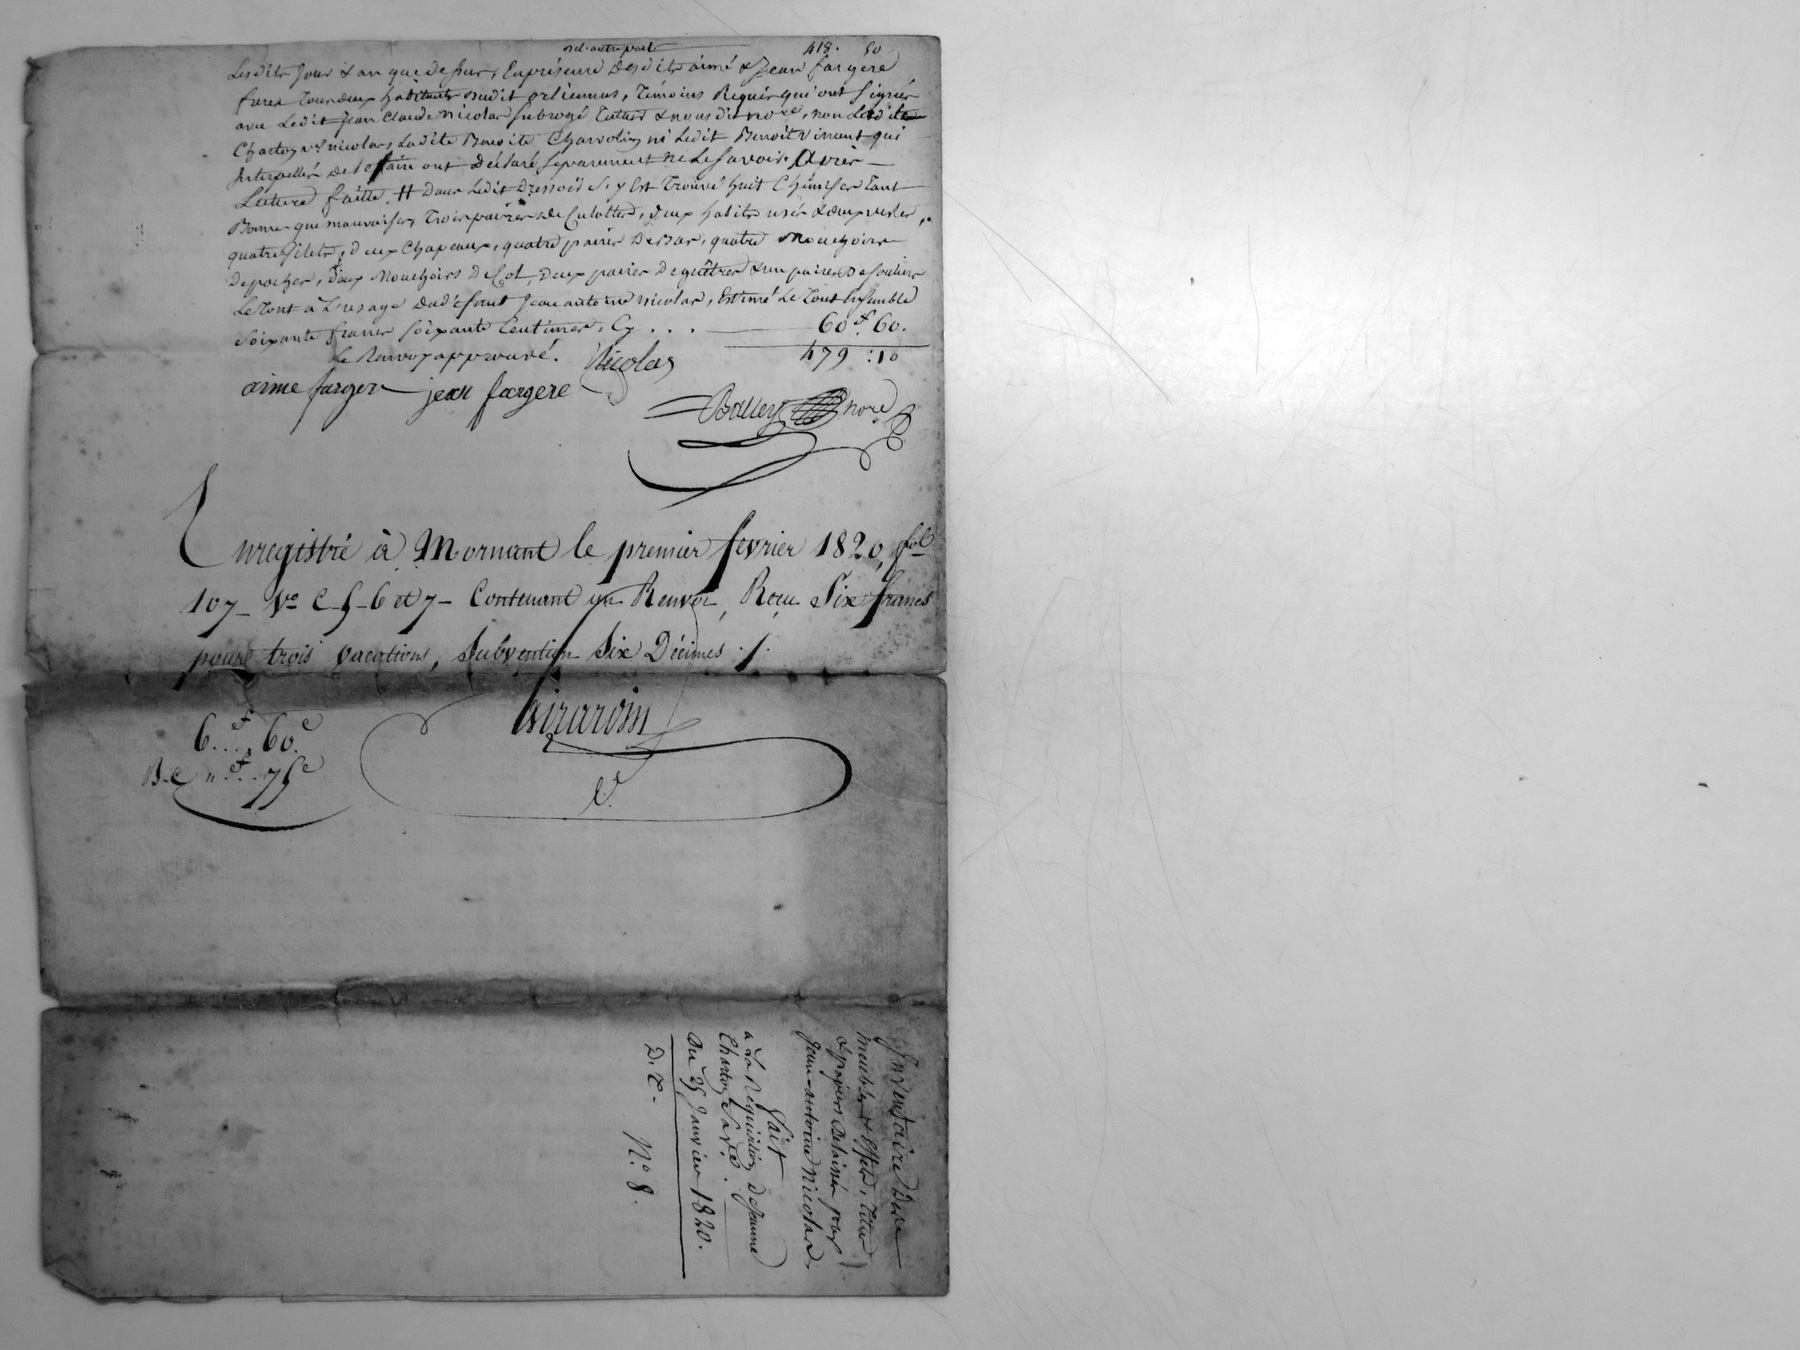 del'autre part 418. 50
Lesdits Jour & an que dessus, Enprésence Desdits aimé & Jean fargere
freres Tousdeux habitants dudit orliennas, Témoins Requis qui ont signés
avec Ledit Jean Claude Nicolas subrogé Tuteur & nous dit no.re, non Ladite
Chartoy ve nicolas Ladite Benoite Charvolin ni Ledit Benoit Vincent qui
Interpellés de le faire ont Déclaré séparément ne Le savoir. Après
Lecture faitte. H Dans Ledit Dressoir S'y Est Trouvé huit Chemises Tant
Bonnes que mauvaises, Trois paires de Culottes, deux habits usés & deux vestes,
quatre Gilets, deux Chapeaux, quatre paires Debas, quatre Mouchoirs
de poches, deux Mouchoirs de Col, Deux paires De guêtres & une paire De souliers
Le Tout à L'usage dudéfunt Jean antoine nicolas, Estimé Le Tout Ensemble
Soixante francs soixante Centimes, Cy . . . 60 f 60.
Le Renvoy approuvé. Nicolas 479 : 10
aime farger jean fargere
Balley nore
Enregistré à Mornant le premier fevrier 1820, fol
107 Vo C 5-6 et 7 - Contenant un Renvoi, Recu Six francs
pour trois vacations, Subvention Six Décimes ./.
6 f .. 60 c
B.e " f .. 75 c
Girardin
Inventaire Des
meubles & Effets, Titres
& papiers Delaissés par
Jean-antoine Nicolas
fait
à La Réquisition de Jeanne
Chartoy Sa ve.
Du 25 Janvier 1820.
D. E. No. 8.